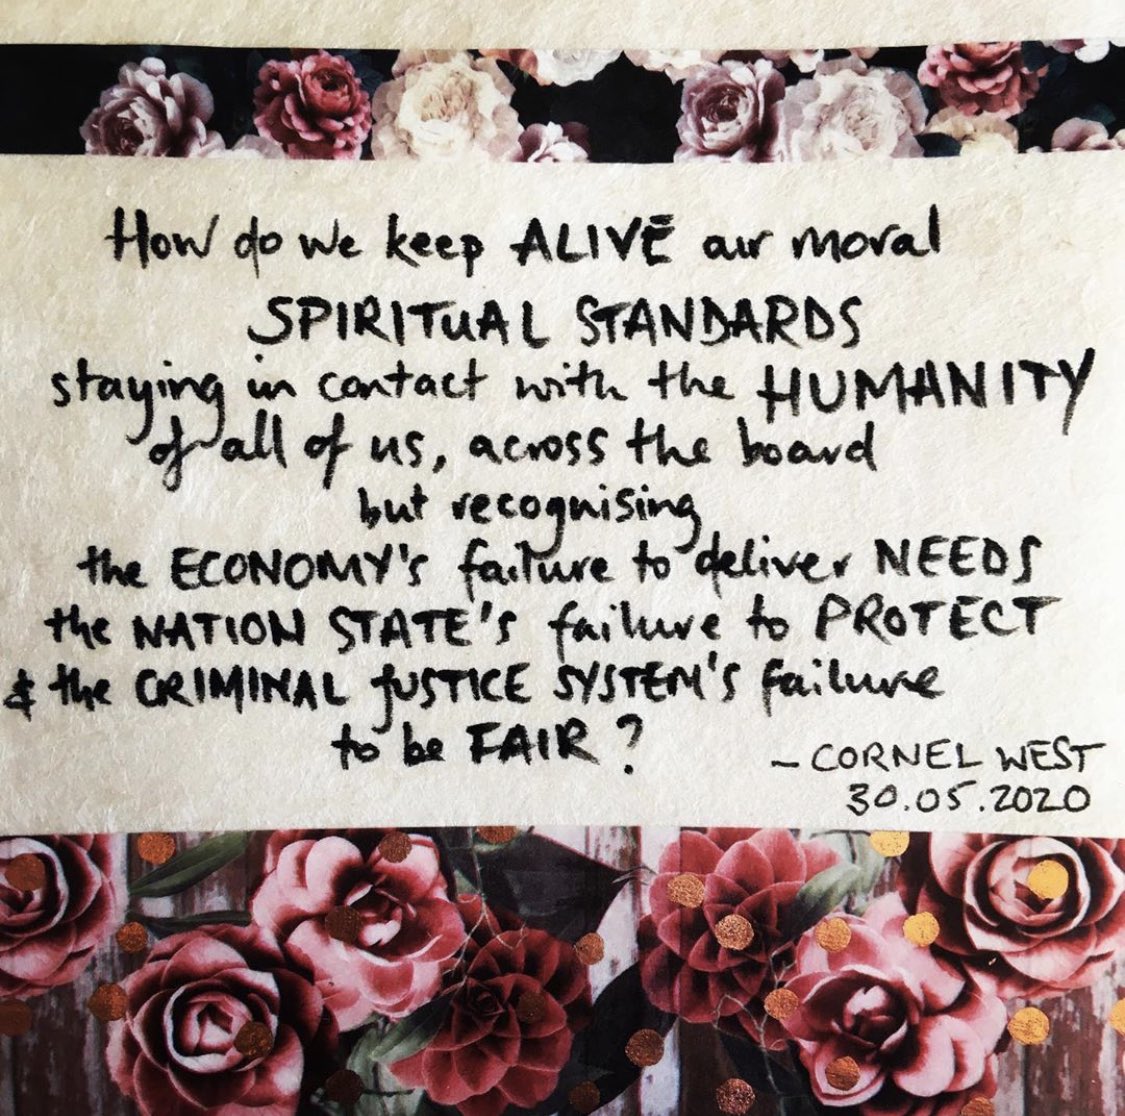 How do we keep ALIVE our moral
SPIRITUAL STANDARDS
staying in contact with the HUMANITY
of all of us, across the board
but recognising
the ECONOMY's failure to deliver NEEDS
the NATION STATE's failure to PROTECT
& the CRIMINAL JUSTICE SYSTEM's failure
to be FAIR?
- CORNEL WEST
30.05.2020